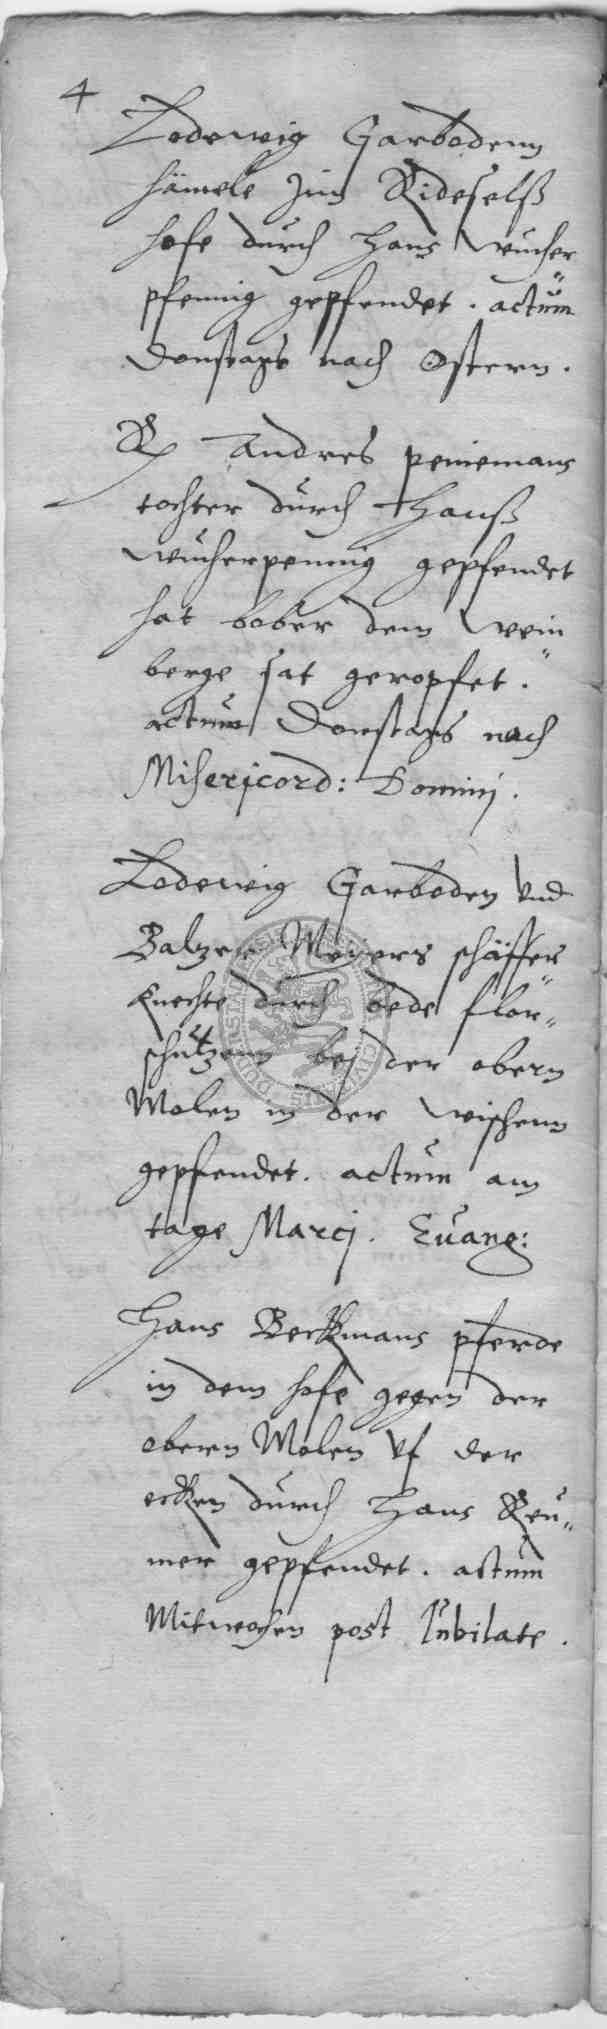 4
Lodewig Garbodenn
hämele Im Rideselß
hofe durch Hans Wucher"
pfennig gepfendet. actum
Donstags nach Ostern.
Andres peniemans
tochter durch Hanß
Wucherpennig gepfendet
hat bober dem Wein"
berge sat geropfet.
actum Donstags nach
Misericord: Dominj.
Lodewig Garboden Vnd
Balzer Meyers schäffer"
Knechte durch bede flor"
schützenn bej der obern
Molen in der Wischenn
gepfendet. actum am
tage Marcj. Euang:
Hans Beckmans pferde
in dem hofe gegen der
obern Molen Vf der
ecken durch Hans Reu"
mer gepfendet. actum
Mitwochen post Iubilate.